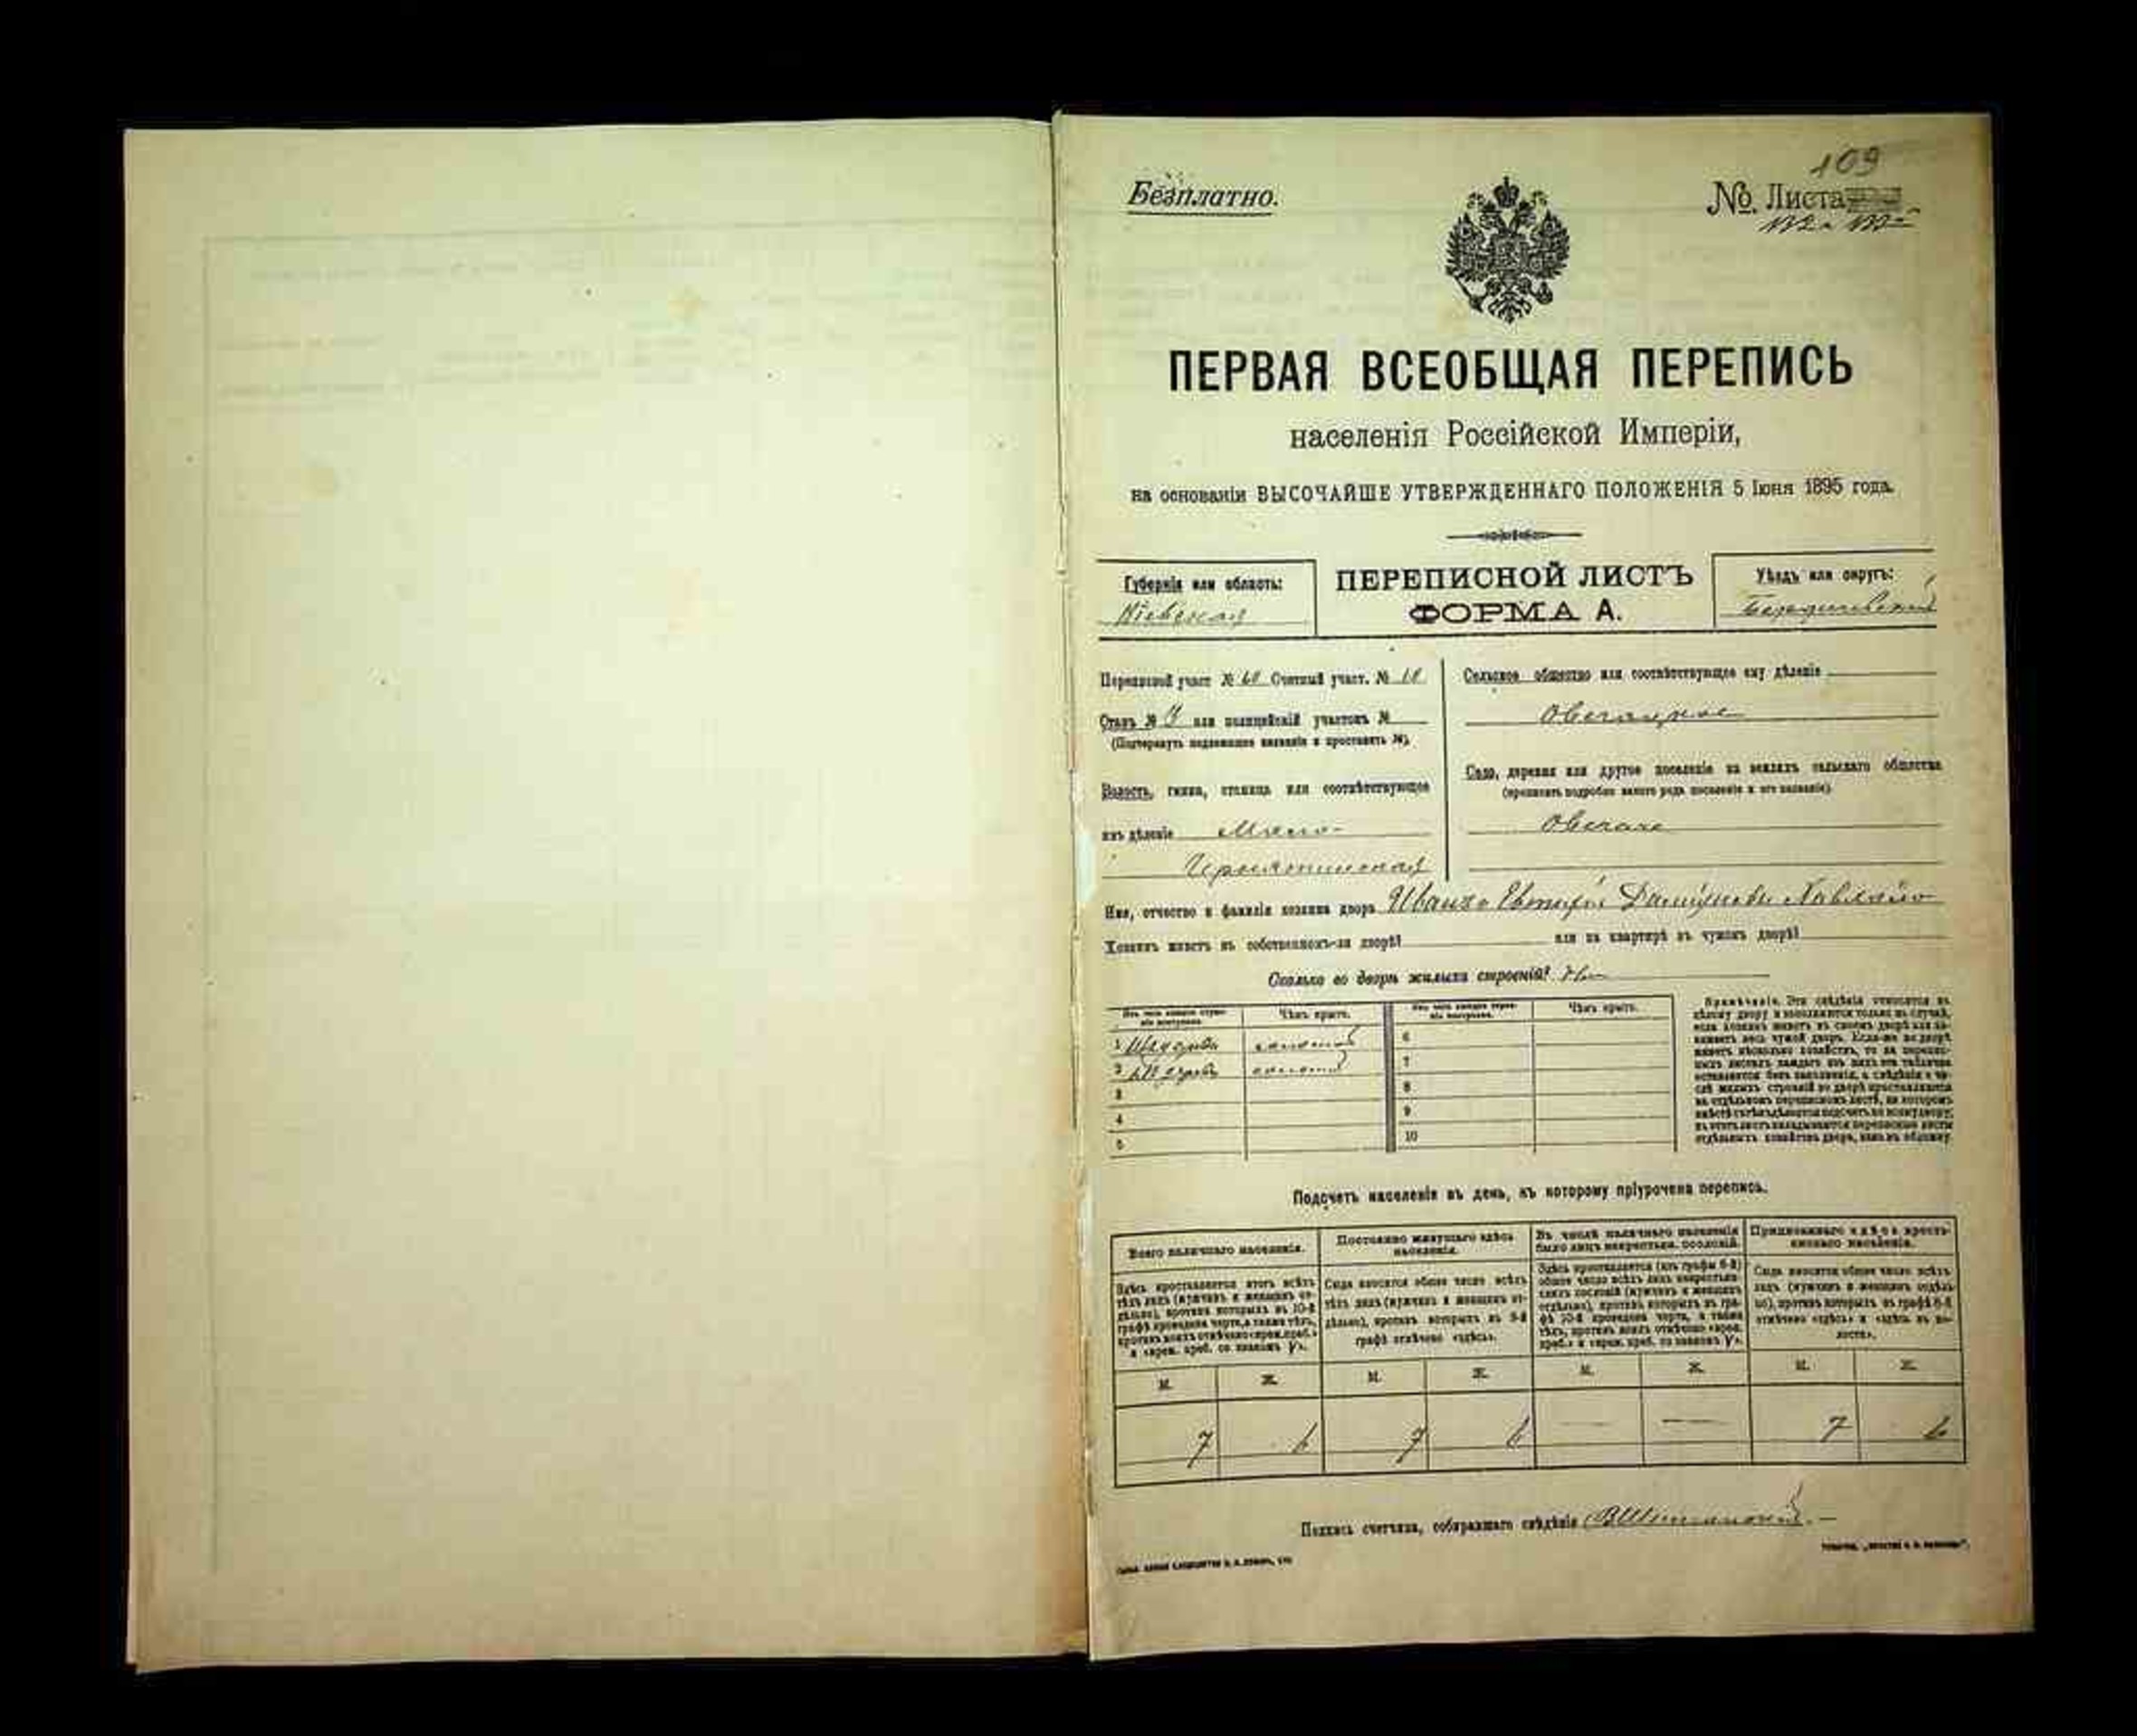 109
Безплатно.
№ Листа
ПЕРВАЯ ВСЕОБЩАЯ ПЕРЕПИСЬ
населенія Россійской Имперіи,
на основаніи ВЫСОЧАЙШЕ УТВЕРЖДЕННАГО ПОЛОЖЕНІЯ 5 Іюня 1895 года.
Губернія или область:
Кіевская
ПЕРЕПИСНОЙ ЛИСТЪ
ФОРМА А.
Уѣздъ или округъ:
Бердичевскій
Переписной участ. № 60 Счетный участ. № 10
Станъ № 3 или полицейскій участокъ №
(Подчеркнуть надлежащее названіе и проставить №).
Волость, гмина, станица или соотвѣтствующее
имъ дѣленіе Мало-
Чернятинская
Сельское общество или соотвѣтствующее ему дѣленіе
Село, деревня или другое поселеніе на земляхъ сельскаго общества
(прописать подробно какого рода поселеніе и его названіе).
Имя, отчество и фамилія хозяина двора
Хозяинъ живетъ въ собственномъ-ли дворѣ? или на квартирѣ въ чужомъ дворѣ?
Сколько во дворѣ жилыхъ строеній?
Изъ чего каждое строеніе построено. Чѣмъ крыто. Изъ чего каждое строеніе построено. Чѣмъ крыто.
1 соломой 6
2 соломой 7
3 8
4 9
5 10
Примѣчаніе. Эти свѣдѣнія относятся къ
цѣлому двору и заполняются только въ случаѣ,
если хозяинъ живетъ въ своемъ дворѣ или за-
нимаетъ весь чужой дворъ. Если-же во дворѣ
живетъ нѣсколько хозяйствъ, то на перепис-
ныхъ листахъ каждаго изъ нихъ эта табличка
оставляется безъ заполненія, а свѣдѣнія о чи-
слѣ жилыхъ строеній во дворѣ проставляются
на отдѣльномъ переписномъ листѣ, на которомъ
вмѣстѣ съ тѣмъ дѣлается подсчетъ по всему двору;
въ этотъ листъ вкладываются переписные листы
отдѣльныхъ хозяйствъ двора, какъ въ обложку.
Подсчетъ населенія въ день, къ которому пріурочена перепись.
Всего наличнаго населенія.
Постоянно живущаго здѣсь
населенія.
Въ числѣ наличнаго населенія
было лицъ некрестьян. сословій.
Приписаннаго здѣсь кресть-
янскаго населенія.
Здѣсь проставляется итогъ всѣхъ
тѣхъ лицъ (мужчинъ и женщинъ от-
дѣльно), противъ которыхъ въ 10-й
графѣ проведена черта, а также тѣхъ,
противъ коихъ отмѣчено «врем. преб.»
и «врем. преб. со знакомъ V».
Сюда вносится общее число всѣхъ
тѣхъ лицъ (мужчинъ и женщинъ от-
дѣльно), противъ которыхъ въ 9-й
графѣ отмѣчено «здѣсь».
Здѣсь проставляется (изъ графы 6-й)
общее число всѣхъ лицъ некрестьян-
скихъ сословій (мужчинъ и женщинъ
отдѣльно), противъ которыхъ въ гра-
фѣ 10-й проведена черта, а также
тѣхъ, противъ коихъ отмѣчено «врем.
преб.» и «врем. преб. со знакомъ V».
Сюда вносится общее число всѣхъ
лицъ (мужчинъ и женщинъ отдѣль-
но), противъ которыхъ въ графѣ 8-й
отмѣчено «здѣсь» и «здѣсь въ во-
лости».
М. Ж. М. Ж. М. Ж. М. Ж.
7 6 7 6 — — 7 6
Подпись счетчика, собиравшаго свѣдѣнія